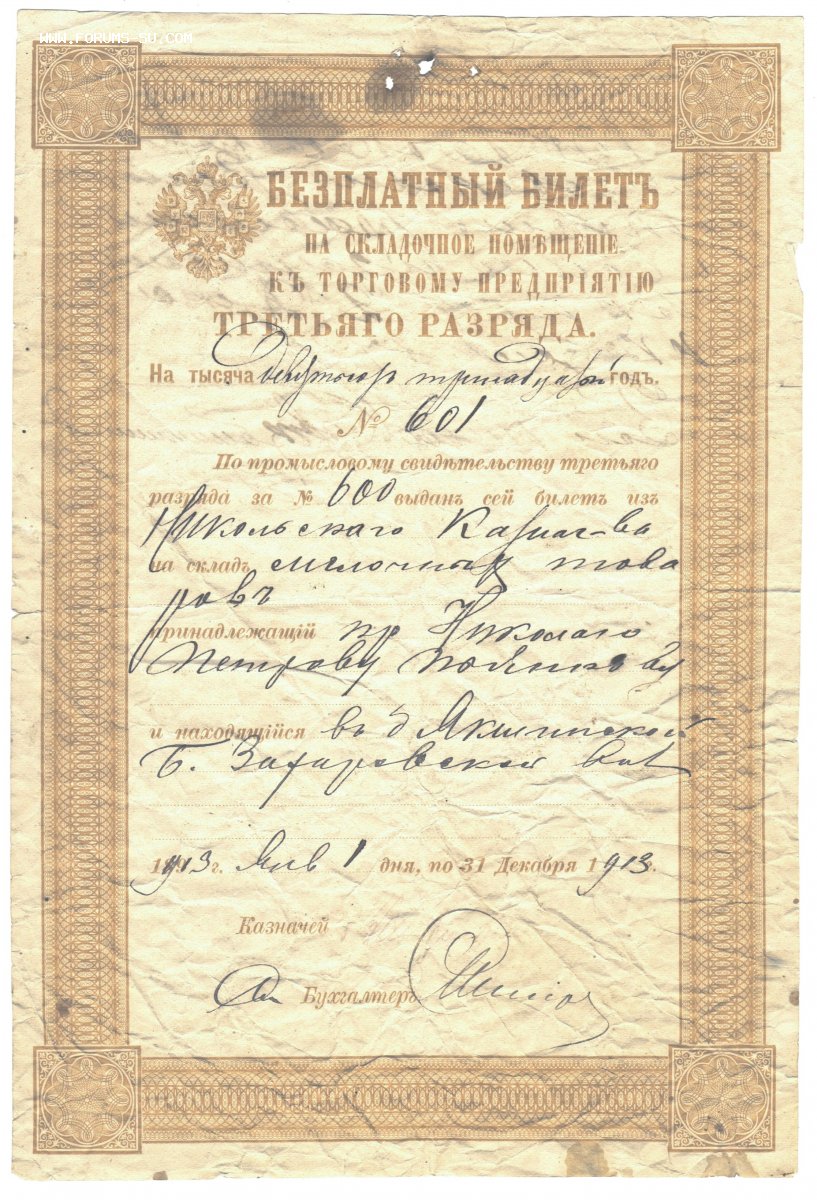 WWW.FORUMS-SU.COM
БЕЗПЛАТНЫЙ БИЛЕТЪ
НА СКЛАДОЧНОЕ ПОМѢЩЕНІЕ
КЪ ТОРГОВОМУ ПРЕДПРІЯТІЮ
ТРЕТЬЯГО РАЗРЯДА.
На тысяча девятьсот тринадцатый годъ.
№ 601
По промысловому свидѣтельству третьяго
разряда за № 600 выданъ сей билетъ изъ
Никольскаго Казнач-ва
на складъ мелочных това
ровъ
принадлежащій кр Николаю
Петрову
и находящійся въ д
Б. Захаровской вол
1913г. Янв 1 дня, по 31 Декабря 1913г.
Казначей
Бухгалтеръ